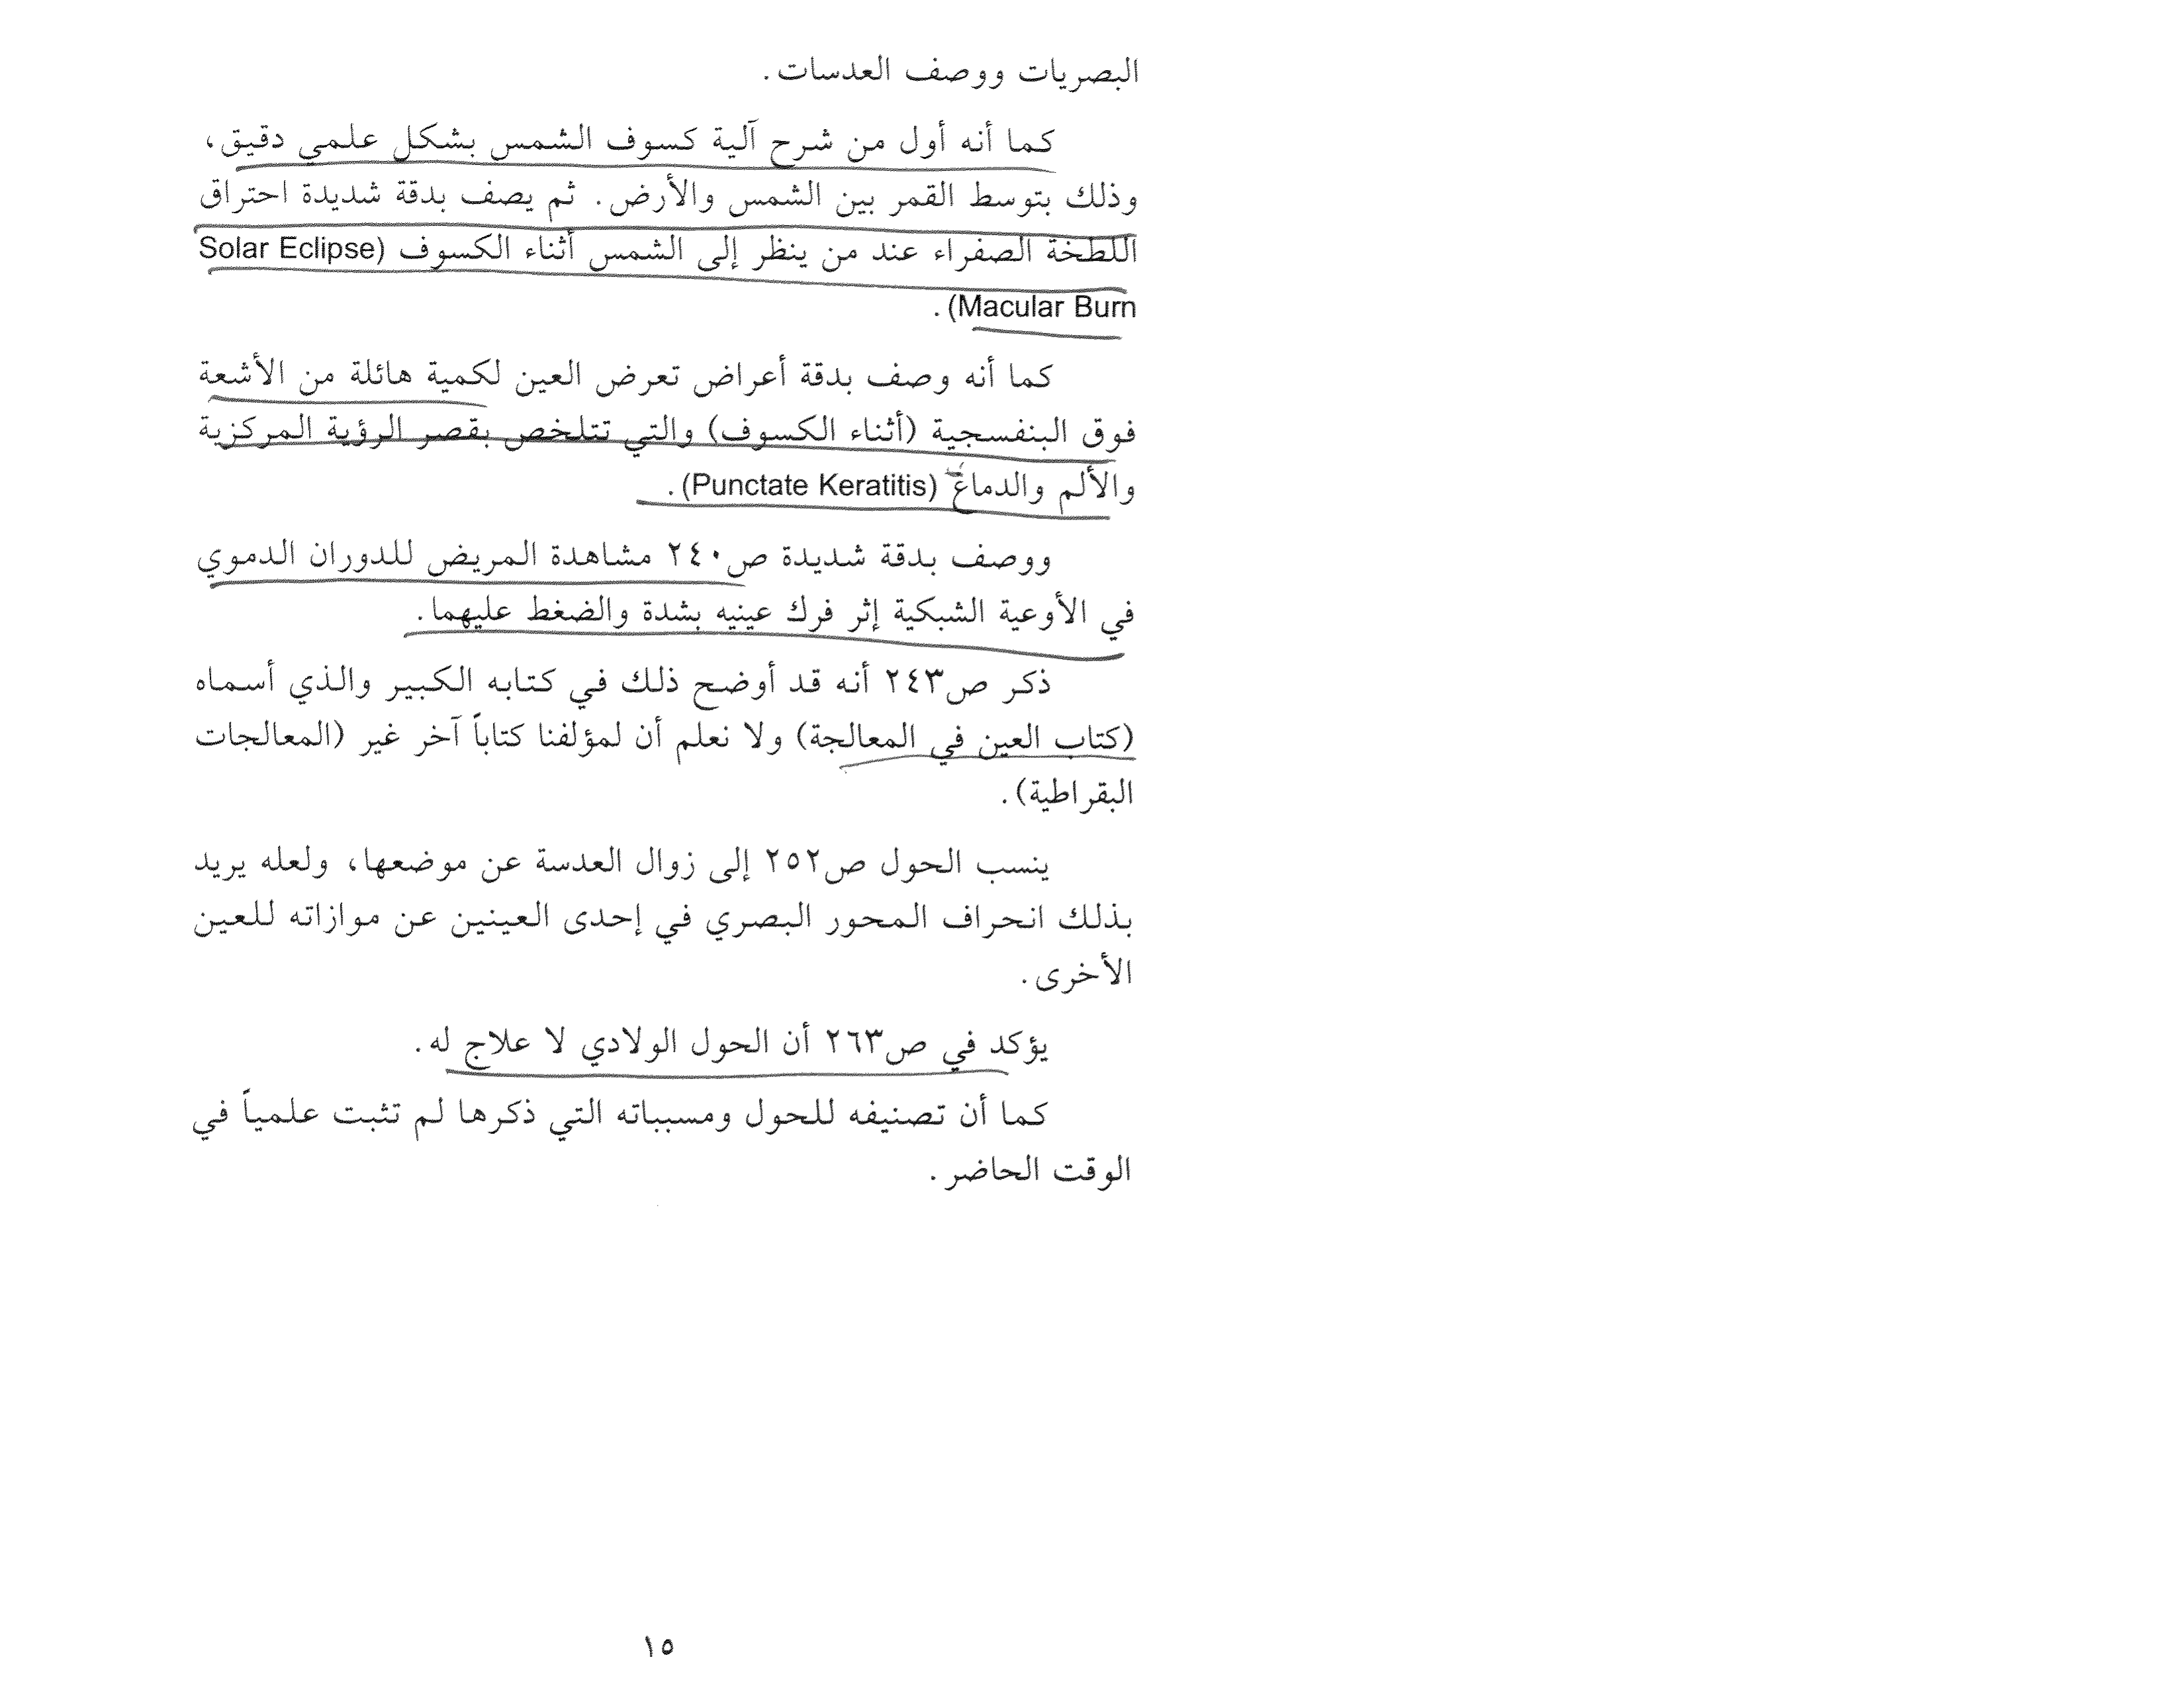 البصريات ووصف العدسات.
كما أنه أول من شرح آلية كسوف الشمس بشكل علمي دقيق،
وذلك بتوسط القمر بين الشمس والأرض. ثم يصف بدقة شديدة احتراق
اللطخة الصفراء عند من ينظر إلى الشمس أثناء الكسوف (Solar Eclipse
Macular Burn).
كما أنه وصف بدقة أعراض تعرض العين لكمية هائلة من الأشعة
فوق البنفسجية (أثناء الكسوف) والتي تتلخص بقصر الرؤية المركزية
والألم والدماغ (Punctate Keratitis).
ووصف بدقة شديدة ص٢٤٠ مشاهدة المريض للدوران الدموي
في الأوعية الشبكية إثر فرك عينيه بشدة والضغط عليهما.
ذكر ص٢٤٣ أنه قد أوضح ذلك في كتابه الكبير والذي أسماه
(كتاب العين في المعالجة) ولا نعلم أن لمؤلفنا كتاباً آخر غير (المعالجات
البقراطية).
ينسب الحول ص٢٥٢ إلى زوال العدسة عن موضعها، ولعله يريد
بذلك انحراف المحور البصري في إحدى العينين عن موازاته للعين
الأخرى.
يؤكد في ص٢٦٣ أن الحول الولادي لا علاج له.
كما أن تصنيفه للحول ومسبباته التي ذكرها لم تثبت علمياً في
الوقت الحاضر.
١٥